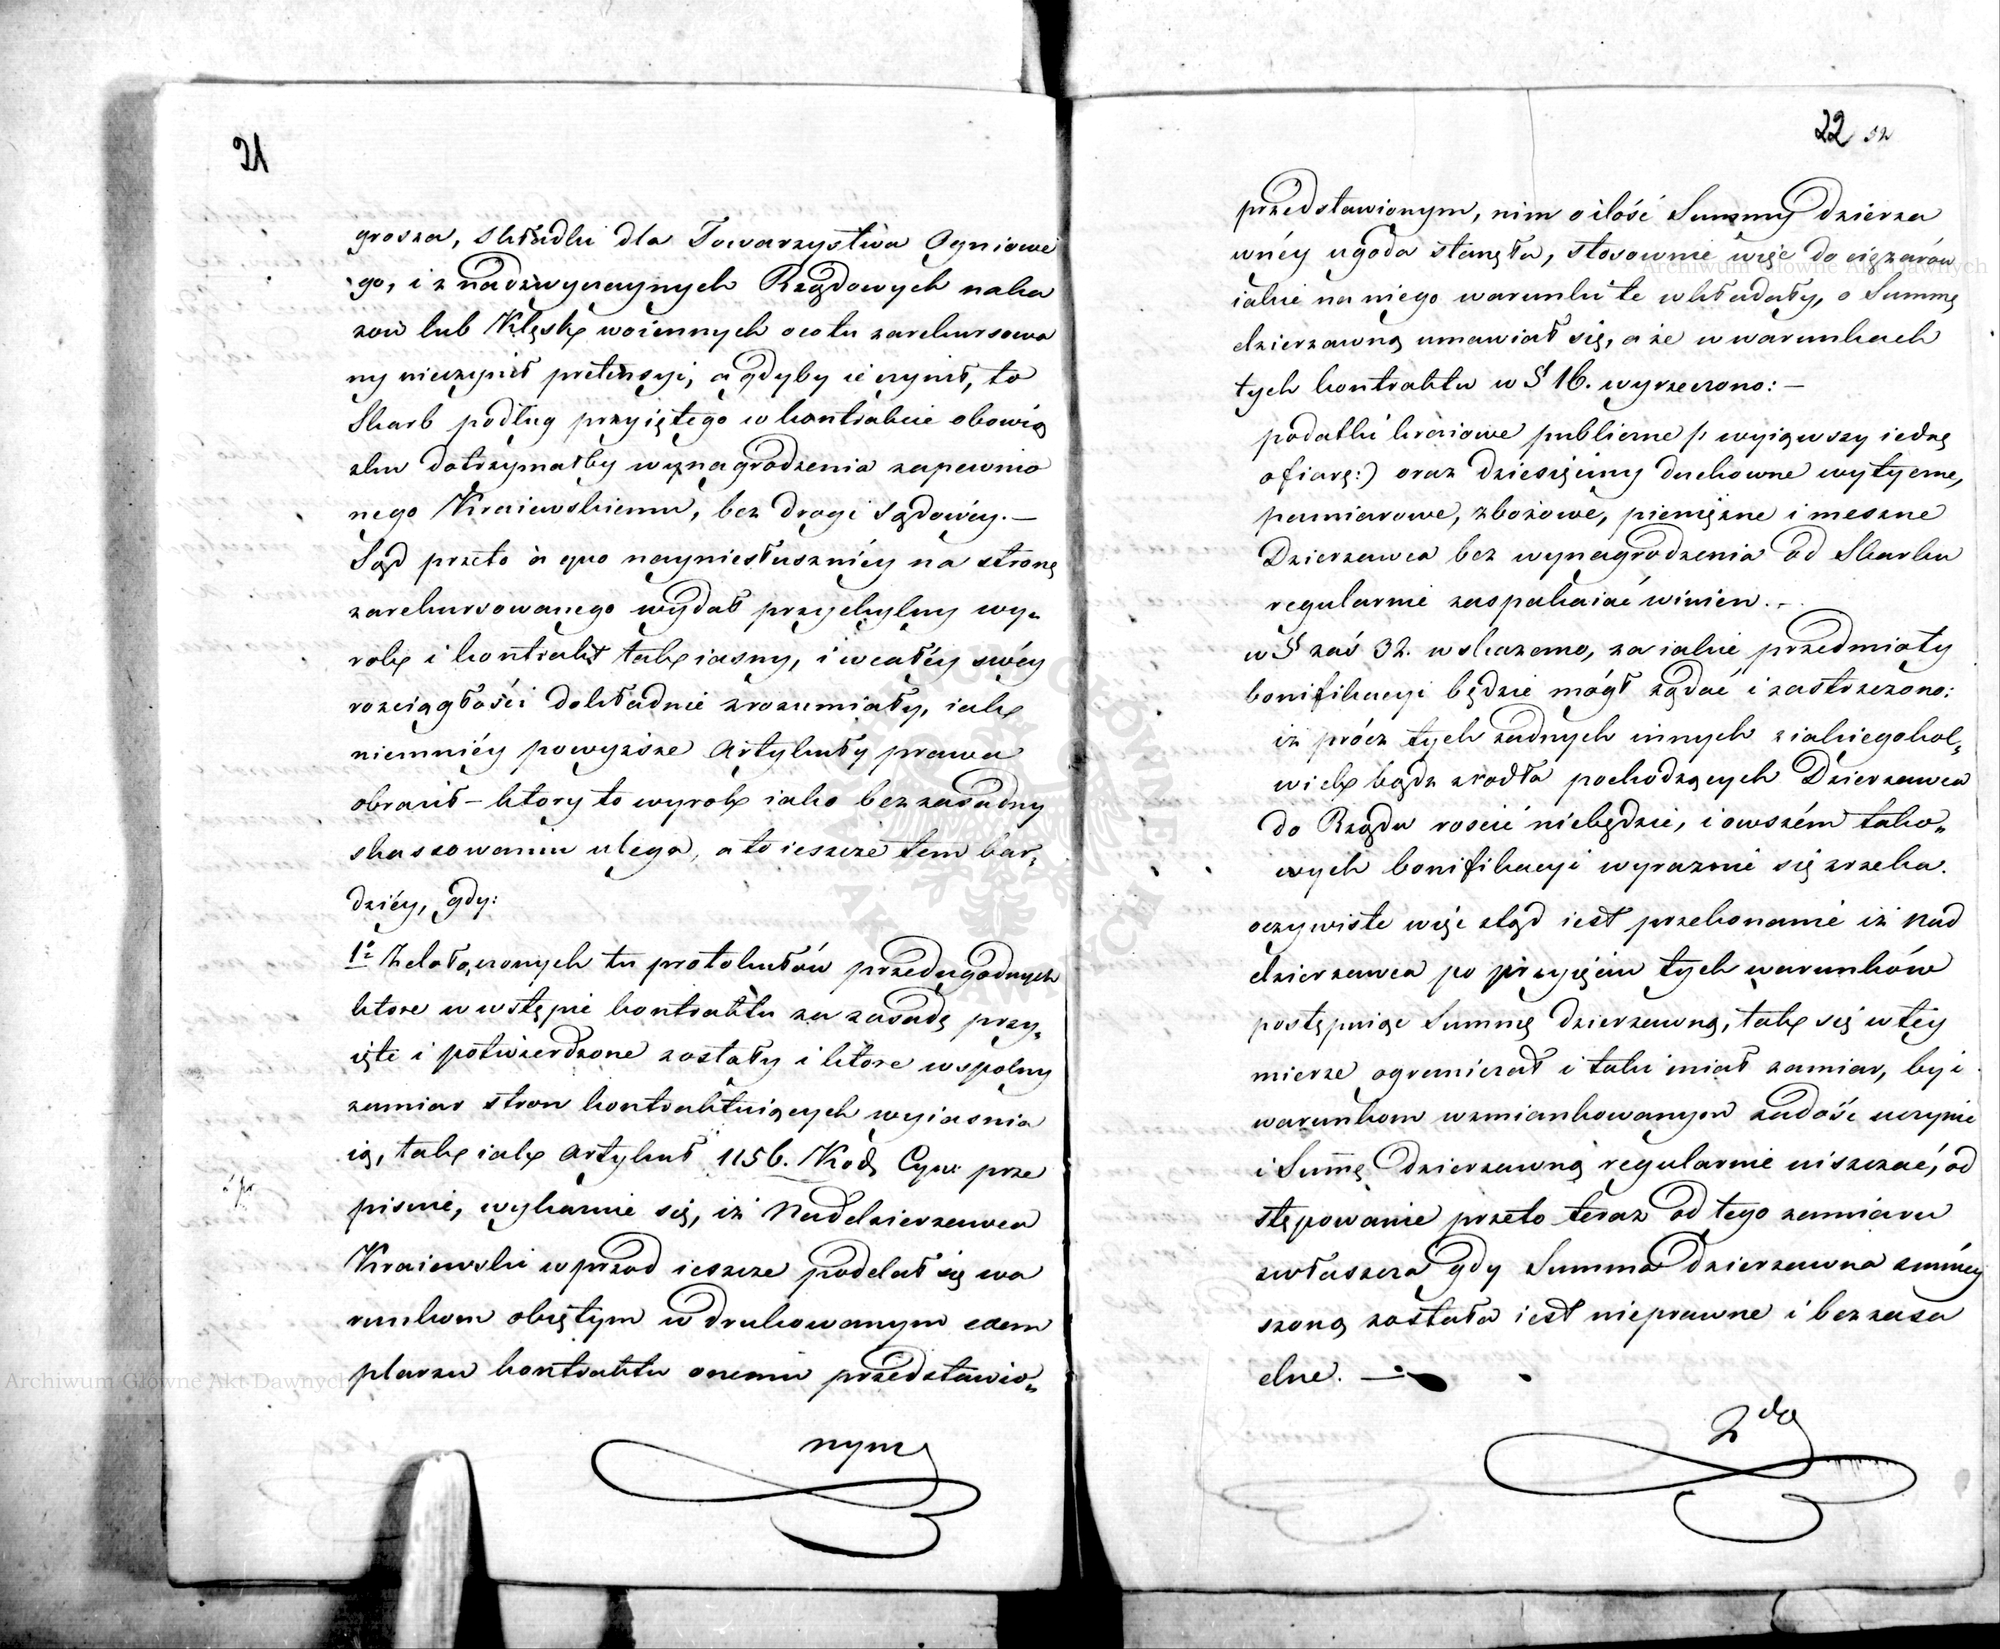 21
grosza, składki dla Towarzystwa Ogniowe
go, i z nadzwyczaynych Rządowych naka
zow lub Klęsk woiennych ocotu zarekursowa
ny nieczynił pretensyi, a gdyby ie czynił, to
Skarb podług przyiętego w kontrakcie obowią
zku dotrzymałby wynagrodzenia zapewnio
nego Kraiewskiemu, bez drogi Sądowéy. —
Sąd przeto à quo nayniesłusznićy na stronę
zarekursowanego wydał przychylny wy„
rok i kontrakt tak iasny, i w całéy swéy
rozciągłości dokładnie zrozumiały, iak
niemniéy powyższe Artykuły prawa
obraził – ktory to wyrok iako bezzasadny
skassowaniu ulega, a to ieszcze tem bar„
dziéy, gdy:
1o Z dołączonych tu protokułów przedugodnych
ktore w wstępie kontraktu za zasadę przy„
ięte i potwierdzone zostały i ktore wspolny
zamiar stron kontraktuiących wyiasnia
ią, tak iak Artykuł 1156. Kod. Cyw: prze
pisuie, wykazuie się, iż Naddzierzawca
Kraiewski wprzod ieszcze poddał się wa
runkom obiętym w drukowanym exem
plarzu kontraktu onemu przedstawio„
nym
22 32
przedstawionym, nim o ilość Summy dzierza
wnéy ugoda stanęła, stosownie więc do ciężarów
iakie na niego warunki te wkładały, o Summę
dzierzawną umawiał się, a że w warunkach
tych kontraktu w § 16. wyrzeczono: —
podatki kraiowe publiczne /: wyiąwszy iedną
ofiarę:) oraz dziesięciny duchowne wytyczne,
pomiarowe, zbożowe, pieniężne i meszne
Dzierzawca bez wynagrodzenia od Skarbu
regularnie zaspakaiać winien. –
w § zaś 32. wskazano, za iakie przedmioty
bonifikacyi będzie mógł żądać i zastrzeżono:
iż prócz tych żadnych innych z iakiegokol„
wiek bądź zrodła pochodzących Dzierzawca
do Rządu rościć niebędzie, i owszém tako„
wych bonifikacyi wyraznie się zrzeka.
oczywiste więc ztąd iest przekonanie iż Nad
dzierzawca po przyięciu tych warunków
postępuiąc Summę dzierzawną, tak się w tey
mierze ograniczał i taki miał zamiar, by i
warunkom wzmiankowanym zadość uczynić
i Summę dzierzawną regularnie uiszczać, od
stępowanie przeto teraz od tego zamiaru
zwłaszcza gdy Summa dzierzawna zmniey
szoną została iest nieprawne i bezzasa
dne. —
2do
Archiwum Główne Akt Dawnych
Archiwum Główne Akt Dawnych